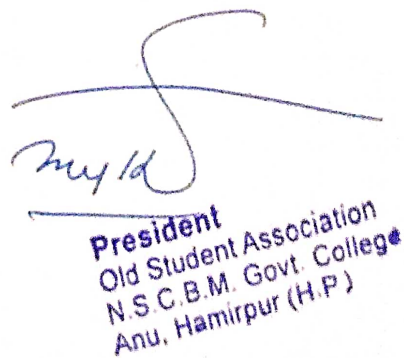 President
Old Student Association
N.S.C.B.M. Govt. College
Anu, Hamirpur (H.P.)